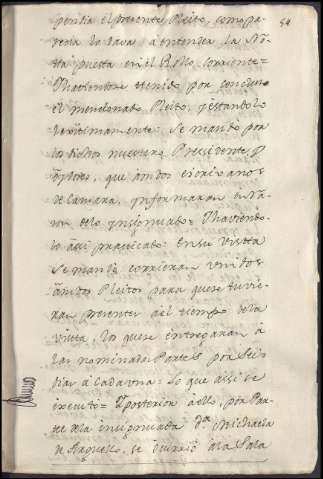 54
pendia el presente Pleito, como pa-
recia lo dava á entender la No-
tta puesta en el Rollo corriente=
Y haviendose tenido por concluso
el mencionado Pleito, y estandolo
lexitimamente, se mandó por
los dichos nuestro Presidente, y
Oydores, que ambos escrivanos
de Camara, ynformaran en ra-
zon de lo ynsignuado= Y haviendo-
lo assi practicado: En su vistta
se mandó corrieran unidos
ambos Pleitos para que se tuvie-
ran presentes al tiempo de la
vista, los que se entregaran á
las nominadas Partes por Seis
dias á cada una= Lo que assi se
executo= Y posterior a ello, por Par-
te de la ynsignuada Dª. Michaela
de Arguello, se ocurrió a la Sala